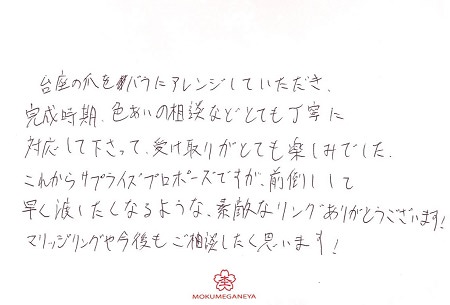 台座の爪をバラにアレンジしていただき、
完成時期、色あいの相談などとても丁寧に
対応して下さって、受け取りがとても楽しみでした。
これからサプライズプロポーズですが、前倒しして
早く渡したくなるような、素敵なリングありがとうございます!
マリッジリングや今後もご相談したく思います!
MOKUMEGANEYA